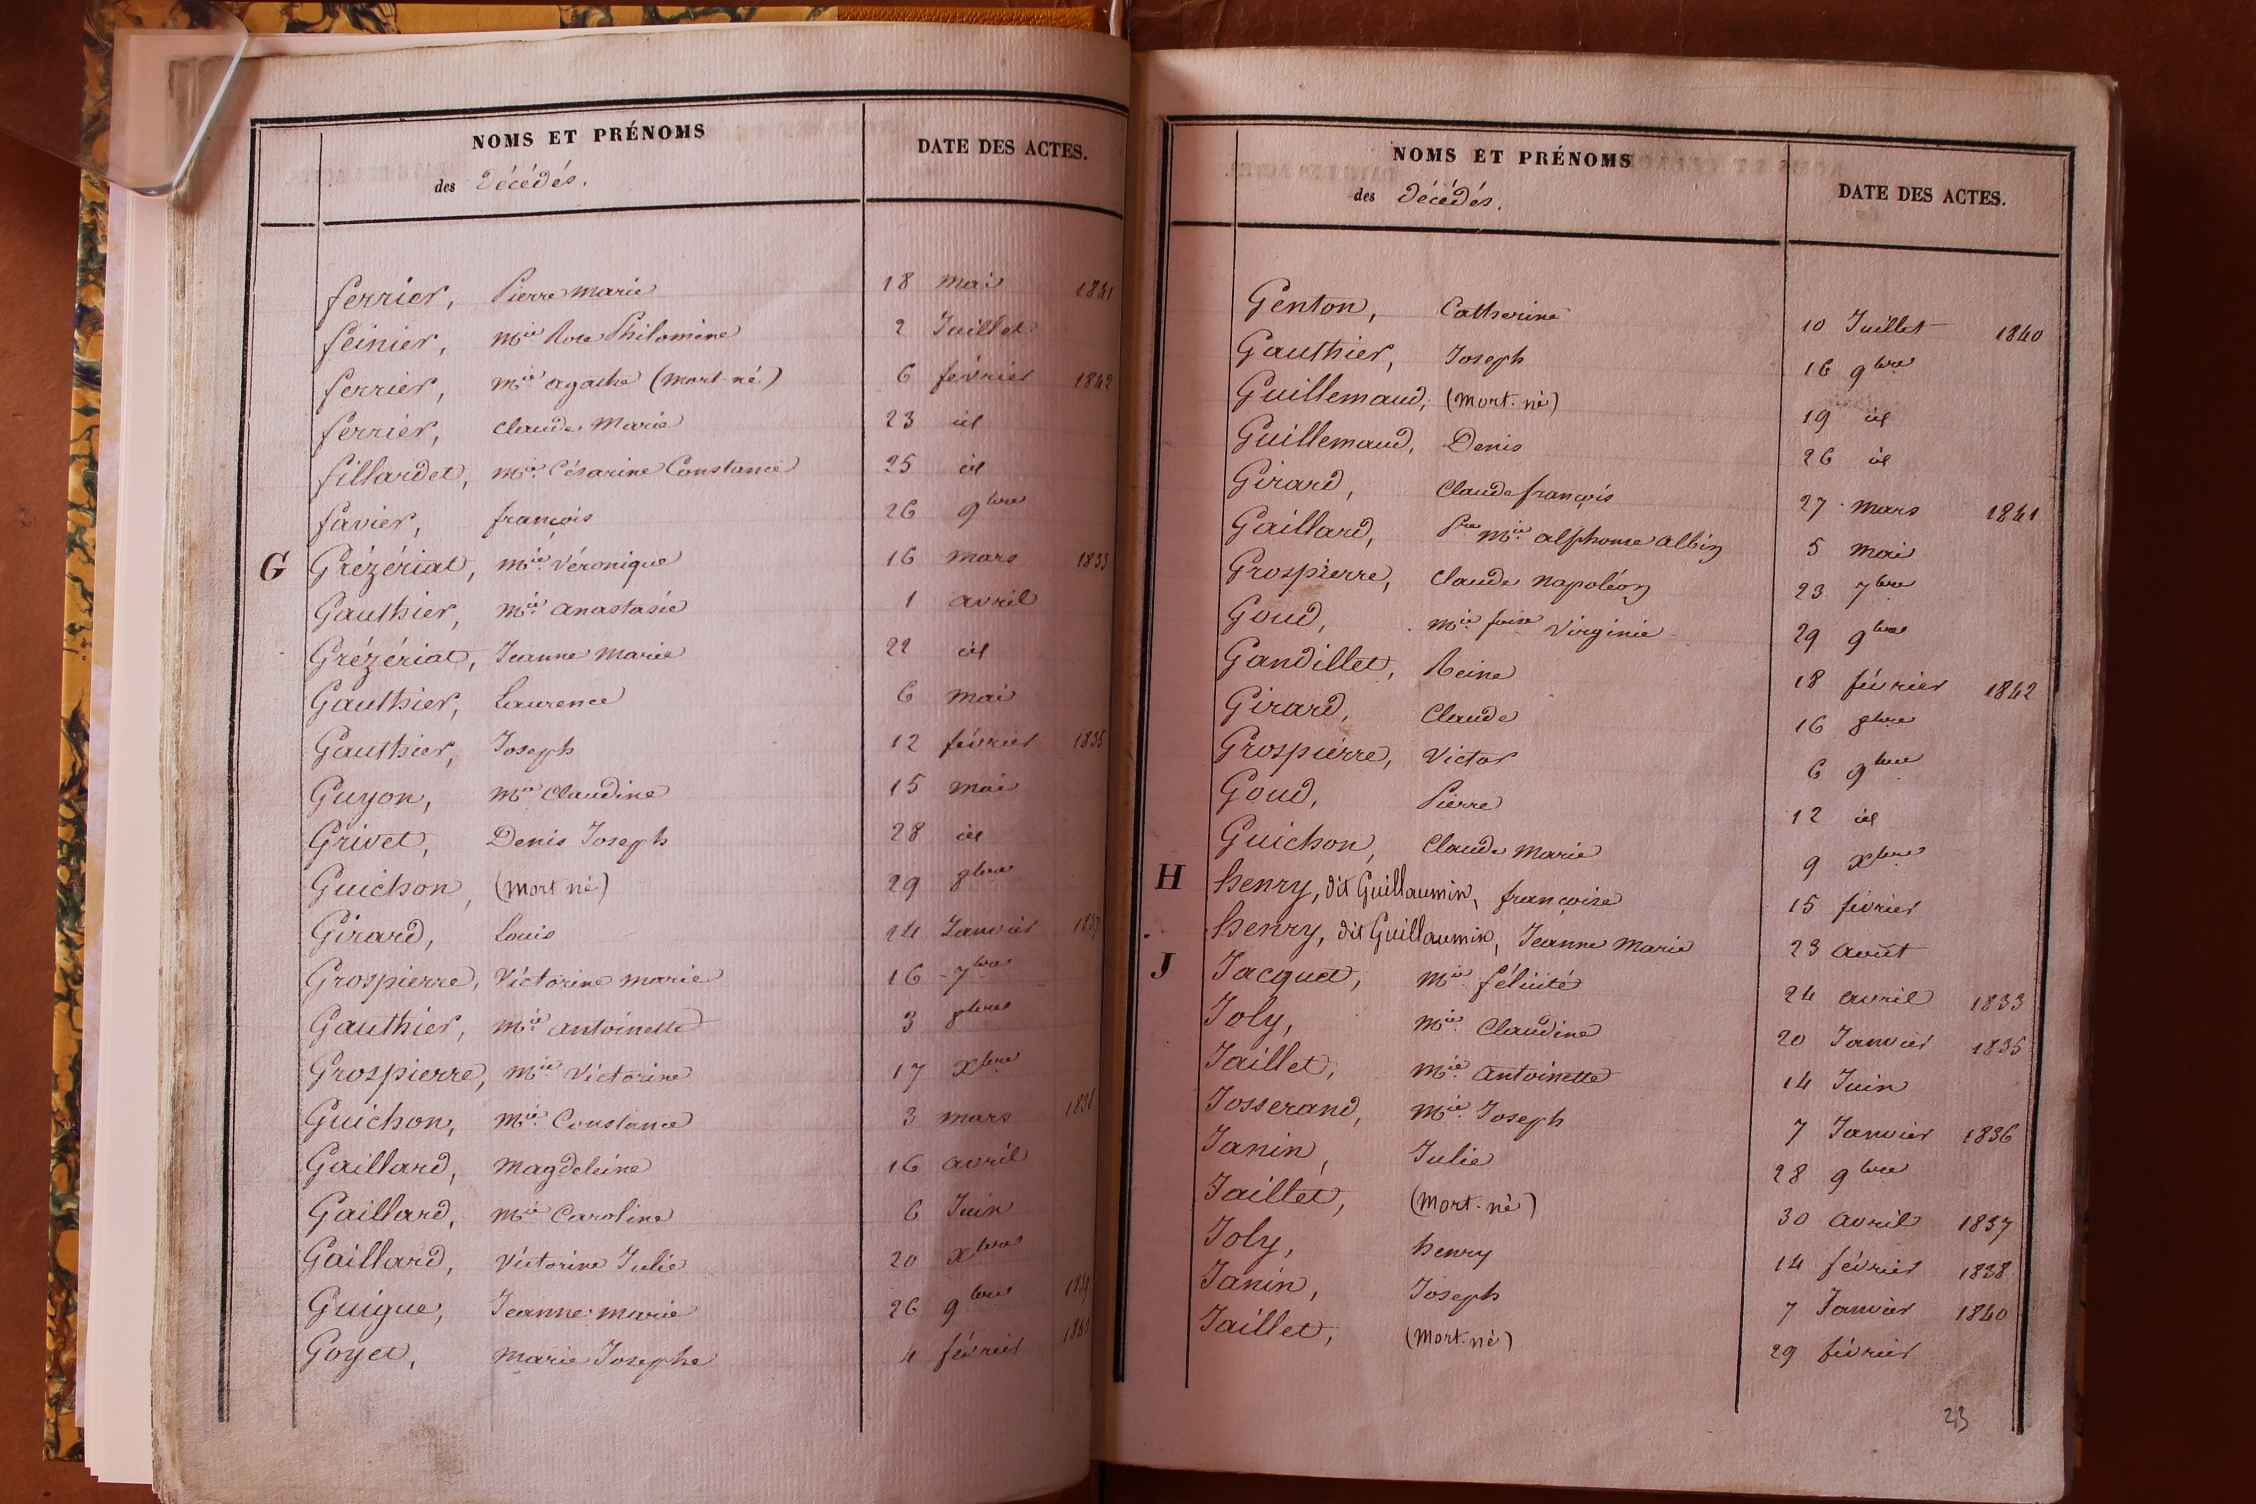 NOMS ET PRÉNOMS
des Décédés.
DATE DES ACTES.
ferrier, Pierre Marie 18 mai 1841
feinier, Mie Rose Philomène 2 Juillet
ferrier, Mie agathe (Mort-né) 6 février 1842
ferrier, Claude Marie 23 id
fillardet, Mie Césarine Constance 25 id
favier, françois 26 9bre
G Grézériat, Mie Véronique 16 mars 1833
Gauthier, Mie anastasie 1 avril
Grézériat, Jeanne Marie 22 id
Gauthier, Laurence 6 mai
Gauthier, Joseph 12 février 1835
Guyon, Mie Claudine 15 mai
Grivet, Denis Joseph 28 id
Guichon, (Mort né) 29 8bre
Girard, Louis 24 Janvier 1837
Grospierre, Victorine marie 16 7bre
Gauthier, Mie antoinette 3 8bre
Grospierre, Mie Victorine 17 xbre
Guichon, Mie Constance 3 mars
Gaillard, Magdeleine 16 avril
Gaillard, Mie Caroline 6 Juin
Gaillard, Victorine Julie 20 xbre
Guigue, Jeanne marie 26 9bre
Goyet, Marie Josephe 4 février
NOMS ET PRÉNOMS
des Décédés.
DATE DES ACTES.
Genton, Catherine 10 Juillet 1840
Gauthier, Joseph 16 9bre
Guillemaud, (Mort-né) 19 id
Guillemaud, Denis 26 id
Girard, Claude françois 27 mars 1841
Gaillard, Pre Mie alphonse albin 5 mai
Grospierre, Claude Napoléon 23 7bre
Goud, Mie foise Virginie 29 9bre
Gandillet, Reine 18 février 1842
Girard, Claude 16 8bre
Grospierre, Victor 6 9bre
Goud, Pierre 12 id
Guichon, Claude Marie 9 xbre
H henry, dit Guillaumin, françoise 15 février
henry, dit Guillaumin, Jeanne Marie 23 août
J Jacquet, Mie félicité 24 avril 1833
Joly, Mie Claudine 20 Janvier 1835
Jaillet, Mie Antoinette 14 Juin
Josserand, Mie Joseph 7 Janvier 1836
Janin, Julie 28 9bre
Jaillet, (Mort-né) 30 avril 1837
Joly, henry 14 février 1838
Janin, Joseph 7 Janvier 1840
Jaillet, (Mort-né) 29 février
23